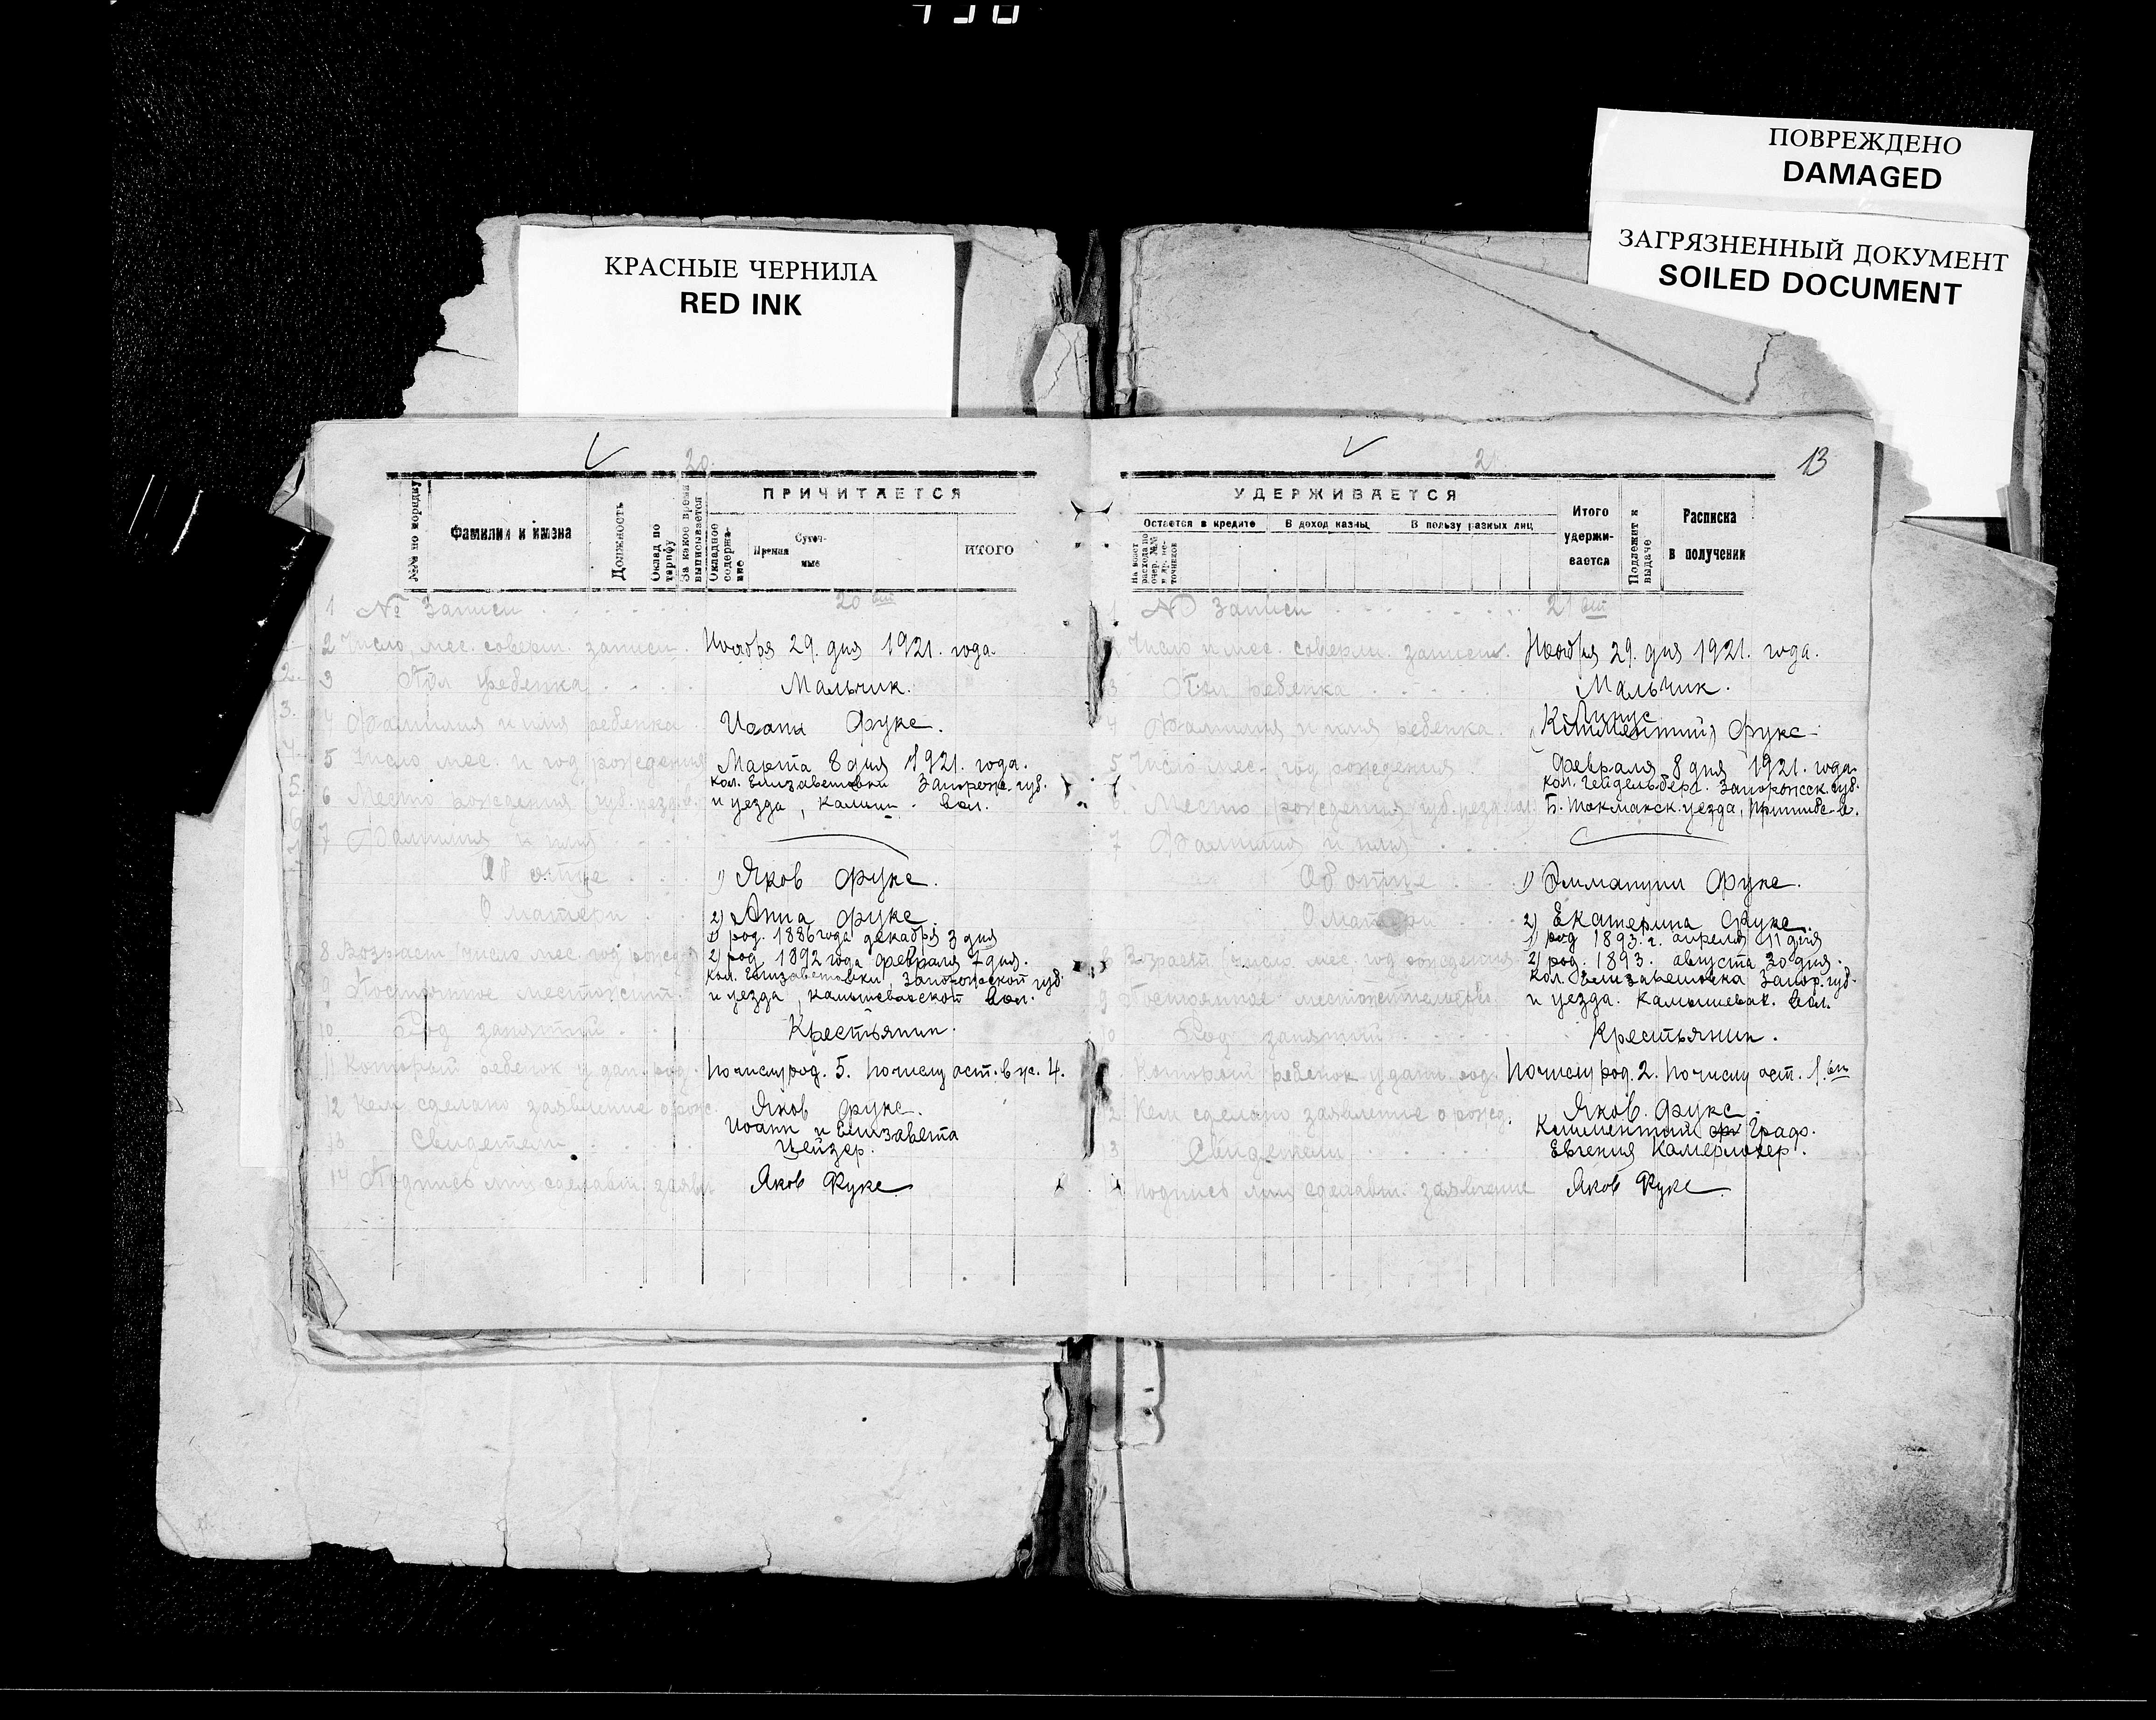 ПОВРЕЖДЕНО
DAMAGED
ЗАГРЯЗНЕННЫЙ ДОКУМЕНТ
SOILED DOCUMENT
КРАСНЫЕ ЧЕРНИЛА
RED INK
20.
№№ по порядку
Фамилия и имена
Должность
Оклад по тарифу
За какое время выписывается
ПРИЧИТАЕТСЯ
Окладное содержа-ние
Премия
Суточ-ные
ИТОГО
1 № Записи 20 ый
2 Число, мес. соверш. записи. Ноября 29. дня 1921. года.
3 Пол ребенка Мальчик.
4 Фамилия и имя ребенка Иоанн Фукс.
5 Число мес. и год рождения Марта 8 дня 1921. года.
кол. Елизаветовки Запорож. губ.
6 Место рождения губ. уезд. в. и уезда, Камыш. вол.
7 Фамилия и имя
Об отце 1) Яков Фукс.
О матери 2) Анна Фукс.
1) род. 1886 года декабря 3 дня
8 Возраст число мес. год рожд. 2) род 1892 года февраля 7 дня.
кол. Елизаветовки, Запорожской губ.
9 Постоянное местожит. и уезда, камышеваской вол.
10 Род занятий Крестьянин.
11 Который ребенок у дан. род. По числу род. 5. По числу ост. в ж. 4.
12 Кем сделано заявление о рожд. Яков Фукс.
Иоанн и Елизавета
13 Свидетели Цейзер.
14 Подпись лиц сделавш. заявл. Яков Фукс
13
УДЕРЖИВАЕТСЯ
Остается в кредите
В доход казны
В пользу разных лиц
Итого удержи-вается
Подлежит к выдаче
Расписка в получении
1 № Записи 21 ый
Число и мес. соверш. записи. Ноября 29. дня 1921. года.
3 Пол ребенка Мальчик.
4 Фамилия и имя ребенка. (Климентий) Фукс
5 Число мес. год рождения Февраля 8 дня 1921. года.
кол. Гейдельберг. Запорожск. губ.
6 Место рождения губ. уезд. вол. Б. Токмакск. уезда, Пришибс. в.
7 Фамилия и имя
Об отце 1) Эммануил Фукс.
О матери 2) Екатерина Фукс.
1) род 1893. г. апреля 11 дня
8 Возраст число мес. год рождения 2) род. 1893. августа 30 дня.
кол. Елизаветовка Запор. губ.
9 Постоянное местожительство и уезда. Камышевах. вол.
10 Род занятий Крестьянин.
Который ребенок у дан. род. По числу род. 2. По числу ост. 1.
Кем сделано заявление о рожд. Яков. Фукс.
Климентий Граф.
Свидетели Евгения Камерлохер.
подпись лиц сделавш. заявление Яков Фукс